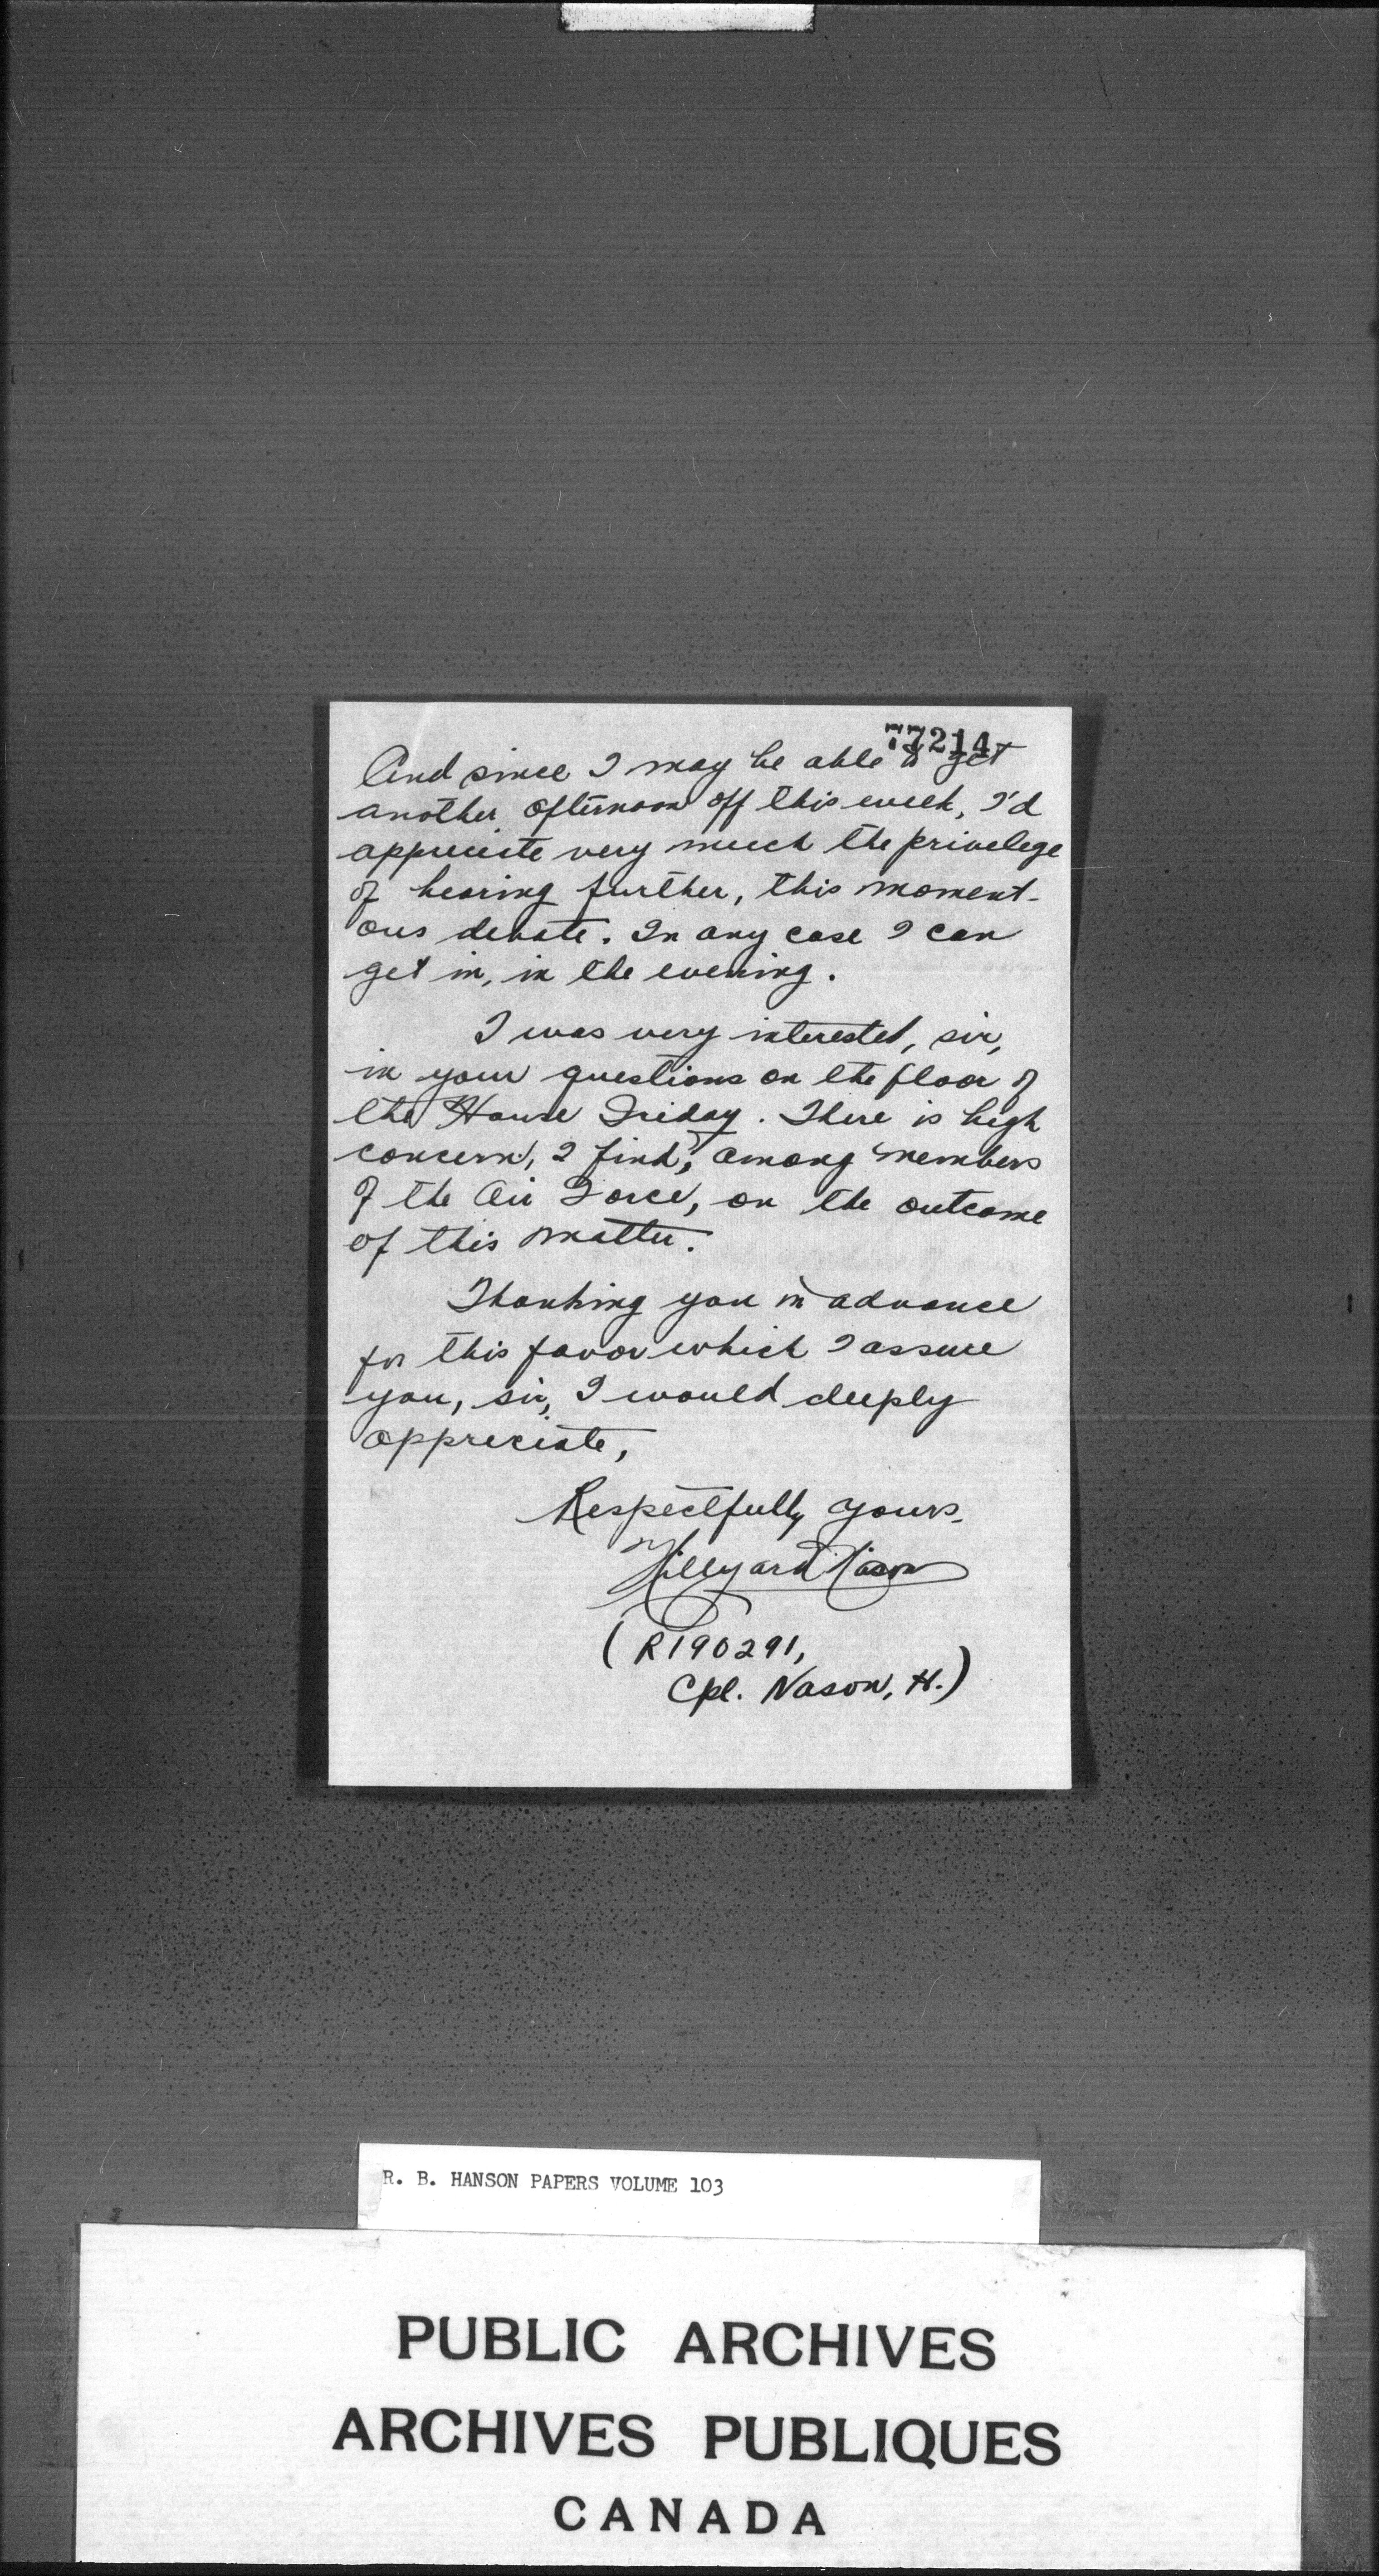 77214
And since I may be able to get
another afternoon off this week, I'd
appreciate very much the privelege
of hearing further, this moment-
ous debate. In any case I can
get in, in the evening.
I was very interested, sir,
in your questions on the floor of
the House Friday. There is high
concern, I find, among members
of the Air Force, on the outcome
of this matter.
Thanking you in advance
for this favor which I assure
you, sir, I would deeply
appreciate,
Respectfully yours,
Hillyard Nason
(R190291,
Cpl. Nason, H.)
R. B. HANSON PAPERS VOLUME 103
PUBLIC ARCHIVES
ARCHIVES PUBLIQUES
CANADA